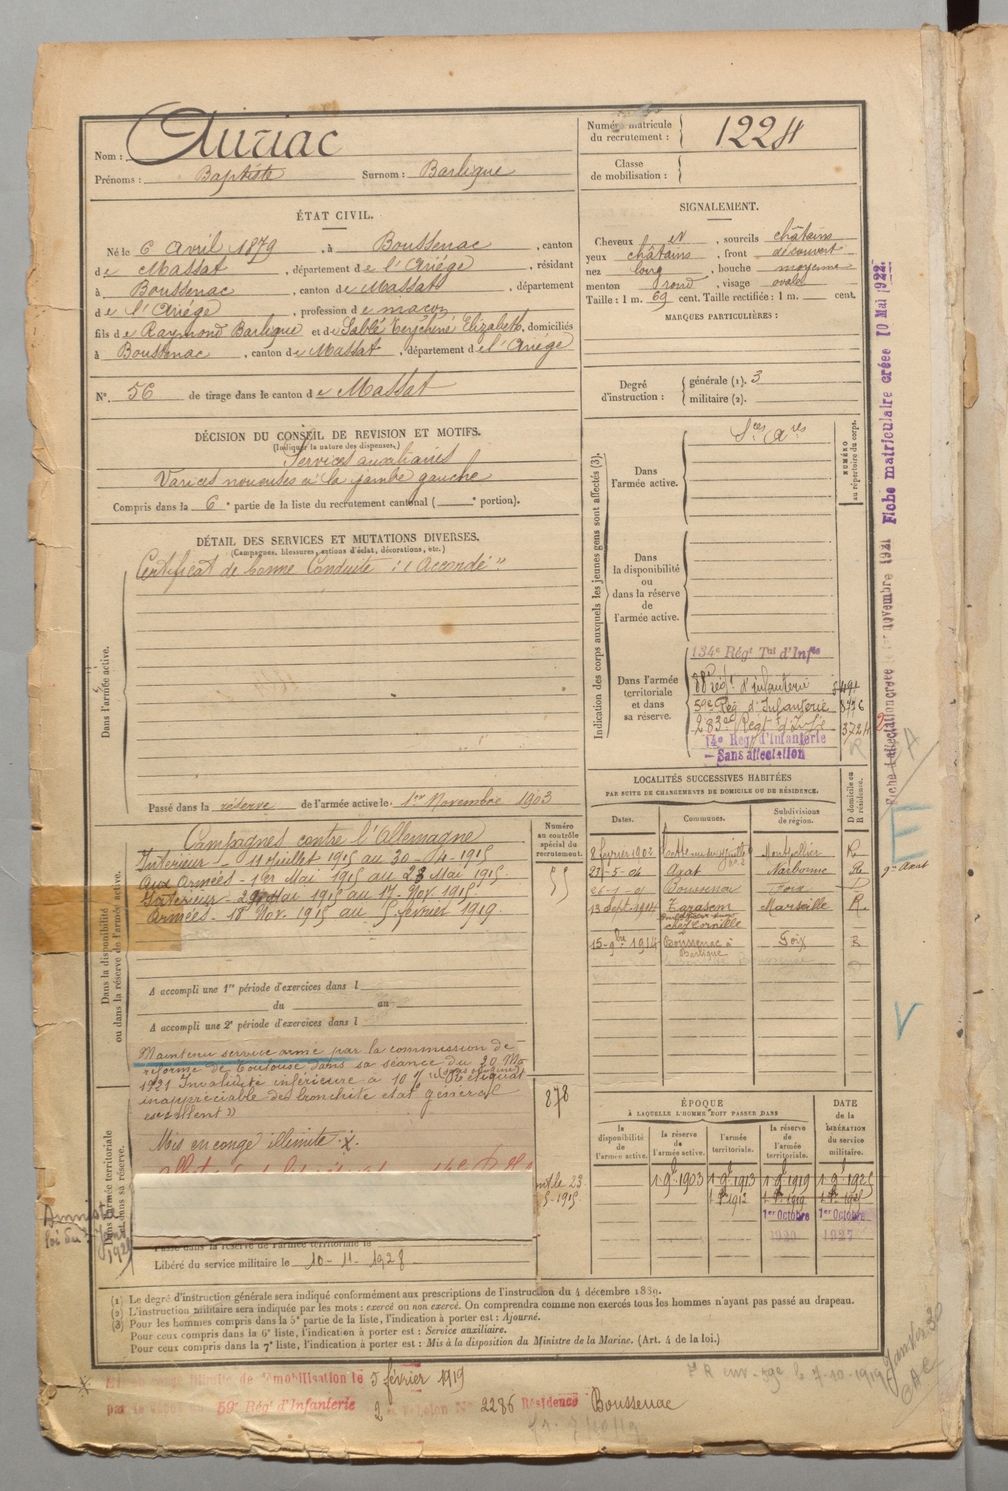 Nom : Auriac
Prénoms : Baptiste Surnom : Barlègue
Numéro matricule du recrutement : 1224
Classe de mobilisation :
ÉTAT CIVIL.
Né le 6 Avril 1879, à Boussenac, canton
de Massat, département de l'Ariège, résidant
à Boussenac, canton de Massat, département
de l'Ariège, profession de maçon
fils de Raymond Barlègue et de Elizabeth, domiciliés
à Boussenac, canton de Massat, département de l'Ariège
N° 56 de tirage dans le canton de Massat
SIGNALEMENT.
Cheveux et, sourcils châtains
yeux châtains, front découvert
nez long, bouche moyenne
menton rond, visage ovale
Taille : 1 m. 69 cent. Taille rectifiée : 1 m. cent.
MARQUES PARTICULIÈRES :
Degré d'instruction : générale (1). 3
militaire (2).
DÉCISION DU CONSEIL DE REVISION ET MOTIFS.
(Indiquer la nature des dispenses.)
Services auxiliaires
Varices noueuses à la jambe gauche
Compris dans la 6e partie de la liste du recrutement cantonal ( e portion).
DÉTAIL DES SERVICES ET MUTATIONS DIVERSES.
(Campagnes, blessures, actions d'éclat, décorations, etc.)
Dans l'armée active.
Certificat de bonne Conduite : "Accordé"
Passé dans la réserve de l'armée active le 1er Novembre 1903
Indication des corps auxquels les jeunes gens sont affectés (3).
NUMÉRO au répertoire du corps.
Dans l'armée active.
Sces Ares
Dans la disponibilité ou dans la réserve de l'armée active.
Dans l'armée territoriale et dans sa réserve.
134e Régt Tal d'Infie
88e régt d'infanterie
59e Rég. d'Infanterie 8736
283e Régt d'Infie 3724
14e Régt d'Infanterie
— Sans affectation
Fiche matriculaire créée 10 Mai 1922.
novembre 1921
Dans la disponibilité ou dans la réserve de l'armée active.
Campagnes contre l'Allemagne
Intérieur - 11 Juillet 1915 au 30-4-1915
Aux Armées - 1er Mai 1915 au 23 Mai 1915
Intérieur - 24 Mai 1915 au 17 Nov. 1915
Armées - 18 Nov. 1915 au 5 février 1919.
Numéro au contrôle spécial du recrutement.
55
A accompli une 1re période d'exercices dans l
du au
A accompli une 2e période d'exercices dans l
Maintenu service armé par la commission de
réforme de Toulouse dans sa séance du 20 Mai
1921 Invalidité inférieure à 10 %
inappréciable de bronchite état général
excellent"
878
Mis en congé illimité
Dans l'armée territoriale et dans sa réserve.
le 23
5-1915
Passé dans la réserve de l'armée territoriale le
Libéré du service militaire le 10-11-1928
LOCALITÉS SUCCESSIVES HABITÉES
PAR SUITE DE CHANGEMENTS DE DOMICILE OU DE RÉSIDENCE.
Dates. Communes. Subdivisions de région. D domicile ou R résidence.
8 février 1902 Montpellier R
21-5-04 Agat Narbonne R
Boussenac Foix D
13 Sept 1914 Tarascon Marseille R.
15-9bre 1914 Boussenac à Barlègue Foix R
ÉPOQUE
À LAQUELLE L'HOMME DOIT PASSER DANS
DATE de la LIBÉRATION du service militaire.
la disponibilité de l'armée active.
la réserve de l'armée active.
l'armée territoriale.
la réserve de l'armée territoriale.
1-9bre 1903 1-9bre 1913 1-9bre 1919 1-9bre 1925
1er Octobre 1er Octobre
1920 1927
(1) Le degré d'instruction générale sera indiqué conformément aux prescriptions de l'instruction du 4 décembre 1889.
(2) L'instruction militaire sera indiquée par les mots : exercé ou non exercé. On comprendra comme non exercés tous les hommes n'ayant pas passé au drapeau.
(3) Pour les hommes compris dans la 5e partie de la liste, l'indication à porter est : Ajourné.
Pour ceux compris dans la 6e liste, l'indication à porter est : Service auxiliaire.
Pour ceux compris dans la 7e liste, l'indication à porter est : Mis à la disposition du Ministre de la Marine. (Art. 4 de la loi.)
Mis en congé illimité de démobilisation le 5 février 1919
59e Régt d'Infanterie 2e échelon N° 2286 Résidence Boussenac